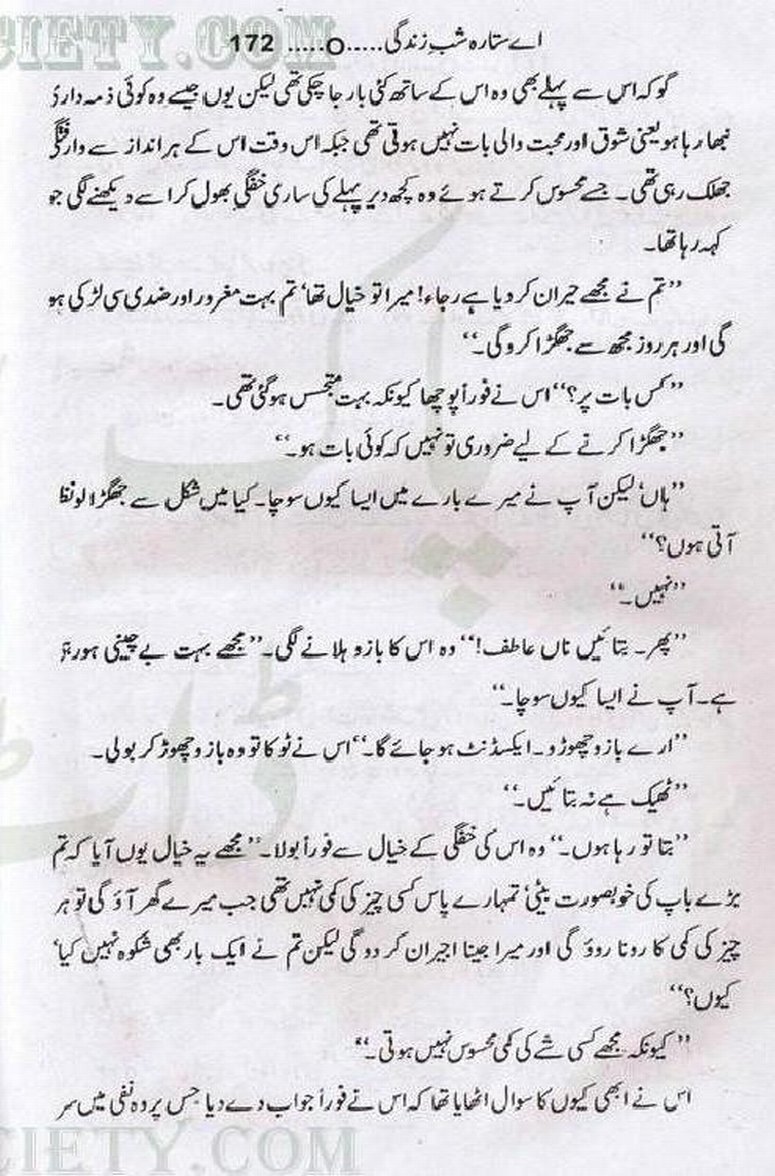 CIETY.COM
اے ستارہ شب زندگی.....O..... 172
گو کہ اس سے پہلے بھی وہ اس کے ساتھ کئی بار جا چکی تھی لیکن یوں جیسے وہ کوئی ذمہ داری
نبھا رہا ہو یعنی شوق اور محبت والی بات نہیں ہوتی تھی جبکہ اس وقت اس کے ہر انداز سے وارفتگی
جھلک رہی تھی۔ جسے محسوس کرتے ہوئے وہ کچھ دیر پہلے کی ساری خفگی بھول کر اسے دیکھنے لگی جو
کہہ رہا تھا۔
’’تم نے مجھے حیران کر دیا ہے رجاء! میرا تو خیال تھا‘ تم بہت مغرور اور ضدی سی لڑکی ہو
گی اور ہر روز مجھ سے جھگڑا کرو گی۔‘‘
’’کس بات پر؟‘‘ اس نے فوراً پوچھا کیونکہ بہت متجسس ہو گئی تھی۔
’’جھگڑا کرنے کے لیے ضروری تو نہیں کہ کوئی بات ہو۔‘‘
’’ہاں‘ لیکن آپ نے میرے بارے میں ایسا کیوں سوچا۔ کیا میں شکل سے جھگڑالو نظ
آتی ہوں؟‘‘
’’نہیں۔‘‘
’’پھر۔ بتائیں ناں عاطف!‘‘ وہ اس کا بازو ہلانے لگی۔ ’’مجھے بہت بے چینی ہو رہی
ہے۔ آپ نے ایسا کیوں سوچا۔‘‘
’’ارے بازو چھوڑو۔ ایکسڈنٹ ہو جائے گا۔‘‘ اس نے ٹوکا تو وہ بازو چھوڑ کر بولی۔
’’ٹھیک ہے نہ بتائیں۔‘‘
’’بتا تو رہا ہوں۔‘‘ وہ اس کی خفگی کے خیال سے فوراً بولا۔ ’’مجھے یہ خیال یوں آیا کہ تم
بڑے باپ کی خوبصورت بیٹی‘ تمہارے پاس کسی چیز کی کمی نہیں تھی جب میرے گھر آؤ گی تو ہر
چیز کی کمی کا رونا روؤ گی اور میرا جینا اجیران کر دو گی لیکن تم نے ایک بار بھی شکوہ نہیں کیا‘
کیوں؟‘‘
’’کیونکہ مجھے کسی شے کی کمی محسوس نہیں ہوتی۔‘‘
اس نے ابھی کیوں کا سوال اٹھایا تھا کہ اس نے فوراً جواب دے دیا جس پر وہ نفی میں سر
CIETY.COM